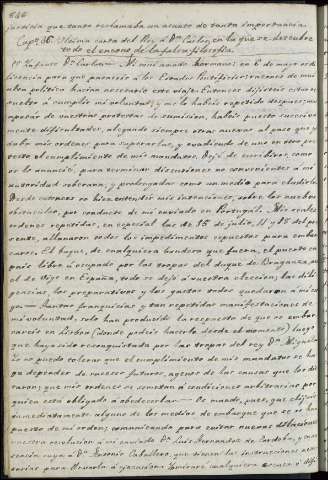 justicia que tanto reclamaba un asunto de tanta importancia.
Cap.º 36. Ultima carta del Rey á D.n Carlos, en la que se descubre
todo el encono de la falsa filosofia.
"Infante D.n Carlos = Mi muy amado hermano: en 6 de mayo os dí
licencia para que pasaseis á los Estados Pontificios: razones de muy
alta política hacian necesario este viaje. Entonces dijisteis estar re-
suelto á cumplir mi voluntad, y me lo habeis repetido despues; mas
á pesar de vuestras protestas de sumision, habeis puesto sucesiva-
mente dificultades, alegando siempre otras nuevas al paso que yo
daba mis ordenes para superarlas, y evadiendo de uno en otro pre-
testo el cumplimiento de mis mandatos. Dejé de escribiros, como
os lo anuncié, para terminar discusiones no convenientes á mi
autoridad soberana, y prolongadas como un medio para eludirla.
Desde entonces os hice entender mis intenciones, sobre los nuevos
obstaculos, por conducto de mi enviado en Portugal. Mis reales
ordenes repetidas, en especial las de 15 de julio, 11 y 18 del pre-
sente, allanaron todos los impedimentos espuestos para embar-
caros. El buque, de cualquiera bandera que fuera, el puerto en
pais libre ú ocupado por las tropas del duque de Braganza, aun
el de Vigo en España, todo se dejó á vuestra eleccion; las dili-
gencias, los preparativos y los gastos todos quedaron á mi car-
go. — Tantas franquicias y tan repetidas manifestaciones de
mi voluntad, solo han producido la respuesta de que os embar-
careis en Lisboa (donde podeis hacerlo desde el momento) luego
que haya sido reconquistada por las tropas del rey D.n Miguel.
Yo no puedo tolerar que el cumplimiento de mis mandatos se ha-
ga depender de sucesos futuros, agenos de las causas que los dic-
taron; que mis ordenes se sometan á condiciones arbitrarias por
quien está obligado á obedecerlas. — Os mando, pues, que elijais
inmediatamente alguno de los medios de embarque que se os han
puesto de mi orden; comunicando para evitar nuevas dilaciones
vuestra resolucion á mi enviado D.n Luis Fernandez de Cordova, y en au-
sencia suya á D.n Antonio Caballero, que tienen las instrucciones nece-
sarias para llevarla á ejecucion. Yo miraré cualquiera escusa ó difi-